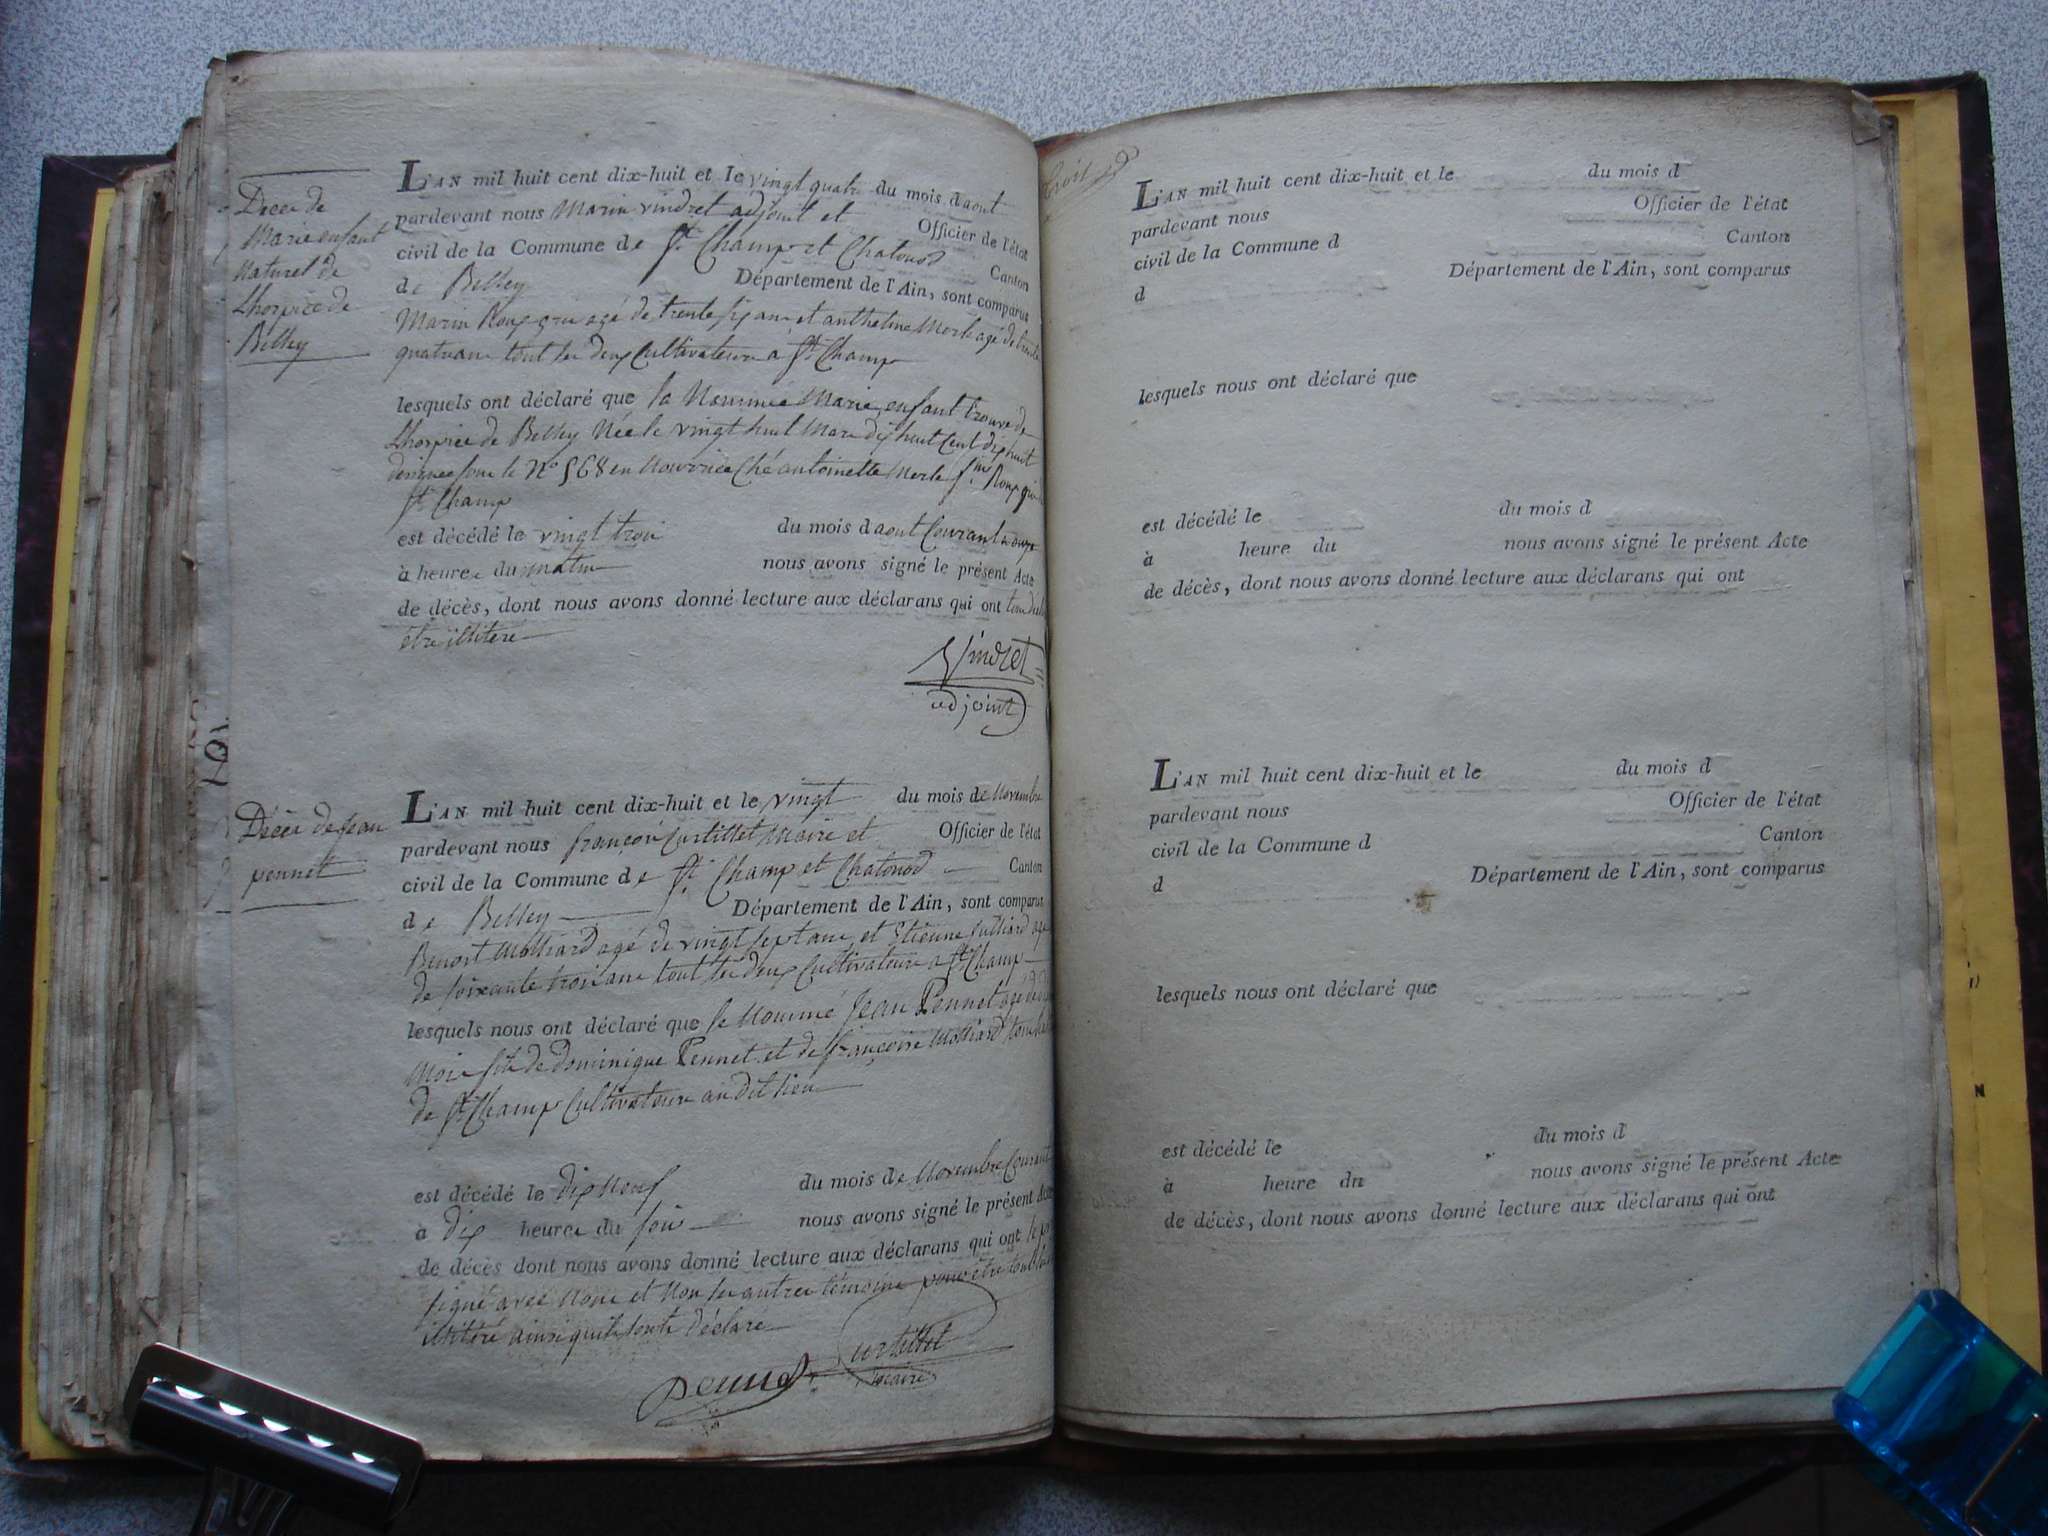 Décès de
Marie enfant
naturel de
Lhospice de
Belley
L'AN mil huit cent dix-huit et le vingt quatre du mois d aout
pardevant nous Marin vindret adjoint et Officier de l'état
civil de la Commune de St. Champ et Chatonod Canton
de Belley Département de l'Ain, sont comparus
Marin Roux agé de trente six ans et anthelme Merle agé de trente
quatre ans tout les deux Cultivateurs a St. Champ
lesquels ont déclaré que la Nommée Marie, enfant trouvé de
Lhospice de Belley Née le vingt huit Mars dix huit Cent dix huit
designée sous le No 568 en Nourrice Ché antoinette Merle fme Roux
St. Champ
est décédé le vingt trois du mois d aout Courant a onze
à heures du matin nous avons signé le présent Acte
de décès, dont nous avons donné lecture aux déclarans qui ont
être illitere
Vindret
adjoint
Décès de Jean
pennet
L'AN mil huit cent dix-huit et le vingt du mois de Novembre
pardevant nous françois Curtillet Maire et Officier de l'état
civil de la Commune de St. Champ et Chatonod Canton
de Belley Département de l'Ain, sont comparus
Benoit Molliard agé de vingt sept ans et Etienne Julliard agé
de soixante trois ans tout les deux Cultivateurs a St. Champ
lesquels nous ont déclaré que le Nommé Jean Pennet agé
Mois fils de Dominique Pennet et de françoise Molliard
de St. Champ Cultivateurs au dit lieu
est décédé le dix Neuf du mois de Novembre Courant
à dix heures du soir nous avons signé le présent Acte
de décès dont nous avons donné lecture aux déclarans qui ont
signé avec Nous et Non les autres témoins pour être tout
illitéré ainsi quils sont déclaré
Curtillet
maire
L'AN mil huit cent dix-huit et le du mois d
pardevant nous Officier de l'état
civil de la Commune d Canton
d Département de l'Ain, sont comparus
lesquels nous ont déclaré que
est décédé le du mois d
à heure du nous avons signé le présent Acte
de décès, dont nous avons donné lecture aux déclarans qui ont
L'AN mil huit cent dix-huit et le du mois d
pardevant nous Officier de l'état
civil de la Commune d Canton
d Département de l'Ain, sont comparus
lesquels nous ont déclaré que
est décédé le du mois d
à heure du nous avons signé le présent Acte
de décès, dont nous avons donné lecture aux déclarans qui ont